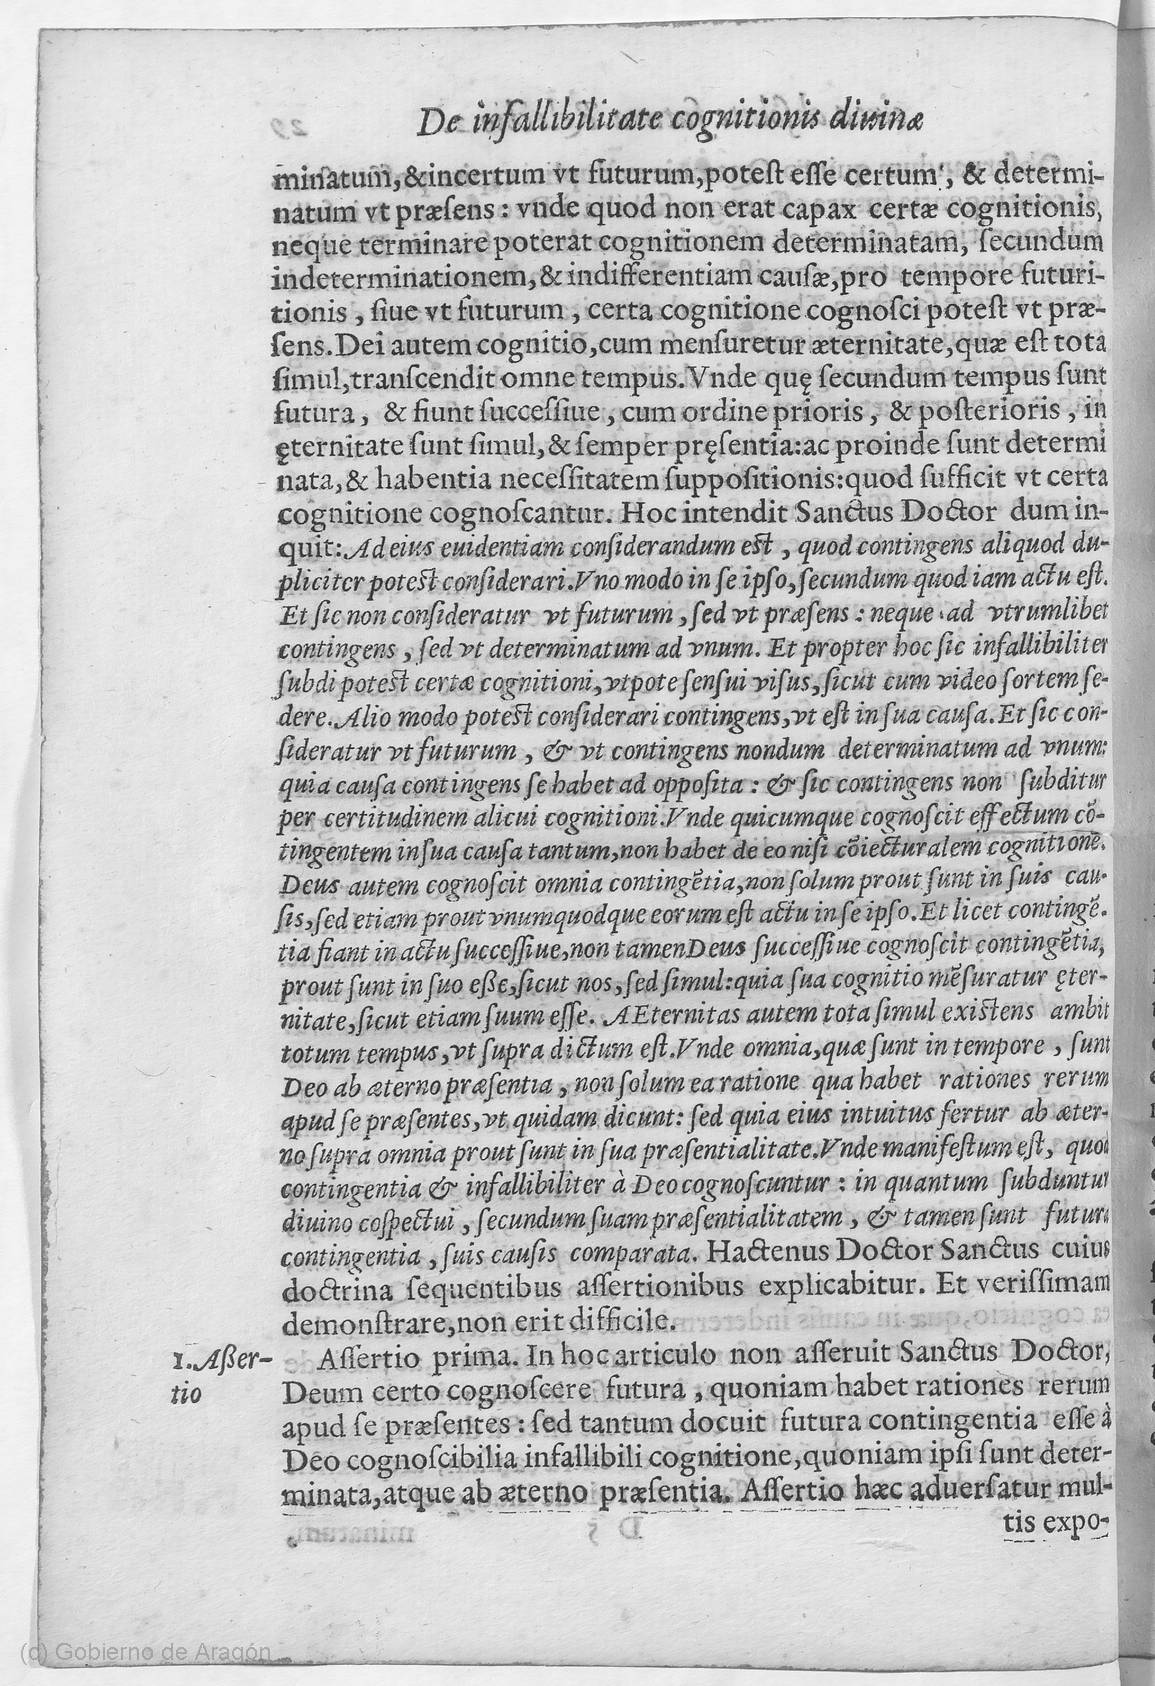 De infallibilitate cognitionis diuinæ
minatum, & incertum vt futurum, potest esse certum, & determi-
natum vt præsens: vnde quod non erat capax certæ cognitionis,
neque terminare poterat cognitionem determinatam, secundum
indeterminationem, & indifferentiam causæ, pro tempore futuri-
tionis, siue vt futurum, certa cognitione cognosci potest vt præ-
sens. Dei autem cognitio, cum mensuretur æternitate, quæ est tota
simul, transcendit omne tempus. Vnde quę secundum tempus sunt
futura, & fiunt successiue, cum ordine prioris, & posterioris, in
ęternitate sunt simul, & semper pręsentia: ac proinde sunt determi
nata, & habentia necessitatem suppositionis: quod sufficit vt certa
cognitione cognoscantur. Hoc intendit Sanctus Doctor dum in-
quit: Ad eius euidentiam considerandum est, quod contingens aliquod du-
pliciter potest considerari. Vno modo in se ipso, secundum quod iam actu est.
Et sic non consideratur vt futurum, sed vt præsens: neque ad vtrumlibet
contingens, sed vt determinatum ad vnum. Et propter hoc sic infallibiliter
subdi potest certæ cognitioni, vtpote sensui visus, sicut cum video sortem se-
dere. Alio modo potest considerari contingens, vt est in sua causa. Et sic con-
sideratur vt futurum, & vt contingens nondum determinatum ad vnum:
quia causa contingens se habet ad opposita: & sic contingens non subditur
per certitudinem alicui cognitioni. Vnde quicumque cognoscit effectum cõ-
tingentem in sua causa tantum, non habet de eo nisi cõiecturalem cognitionẽ.
Deus autem cognoscit omnia contingẽtia, non solum prout sunt in suis cau-
sis, sed etiam prout vnumquodque eorum est actu in se ipso. Et licet contingẽ.
tia fiant in actu successiue, non tamen Deus successiue cognoscit contingẽtia,
prout sunt in suo esse, sicut nos, sed simul: quia sua cognitio mẽsuratur ęter-
nitate, sicut etiam suum esse. AEternitas autem tota simul existens ambit
totum tempus, vt supra dictum est. Vnde omnia, quæ sunt in tempore, sunt
Deo ab æterno præsentia, non solum ea ratione qua habet rationes rerum
apud se præsentes, vt quidam dicunt: sed quia eius intuitus fertur ab æter-
no supra omnia prout sunt in sua præsentialitate. Vnde manifestum est, quod
contingentia & infallibiliter à Deo cognoscuntur: in quantum subduntur
diuino cõspectui, secundum suam præsentialitatem, & tamen sunt futura
contingentia, suis causis comparata. Hactenus Doctor Sanctus cuius
doctrina sequentibus assertionibus explicabitur. Et verissimam
demonstrare, non erit difficile.
1. Asser-
tio
Assertio prima. In hoc articulo non asseruit Sanctus Doctor,
Deum certo cognoscere futura, quoniam habet rationes rerum
apud se præsentes: sed tantum docuit futura contingentia esse à
Deo cognoscibilia infallibili cognitione, quoniam ipsi sunt deter-
minata, atque ab æterno præsentia. Assertio hæc aduersatur mul-
tis expo-
(c) Gobierno de Aragón